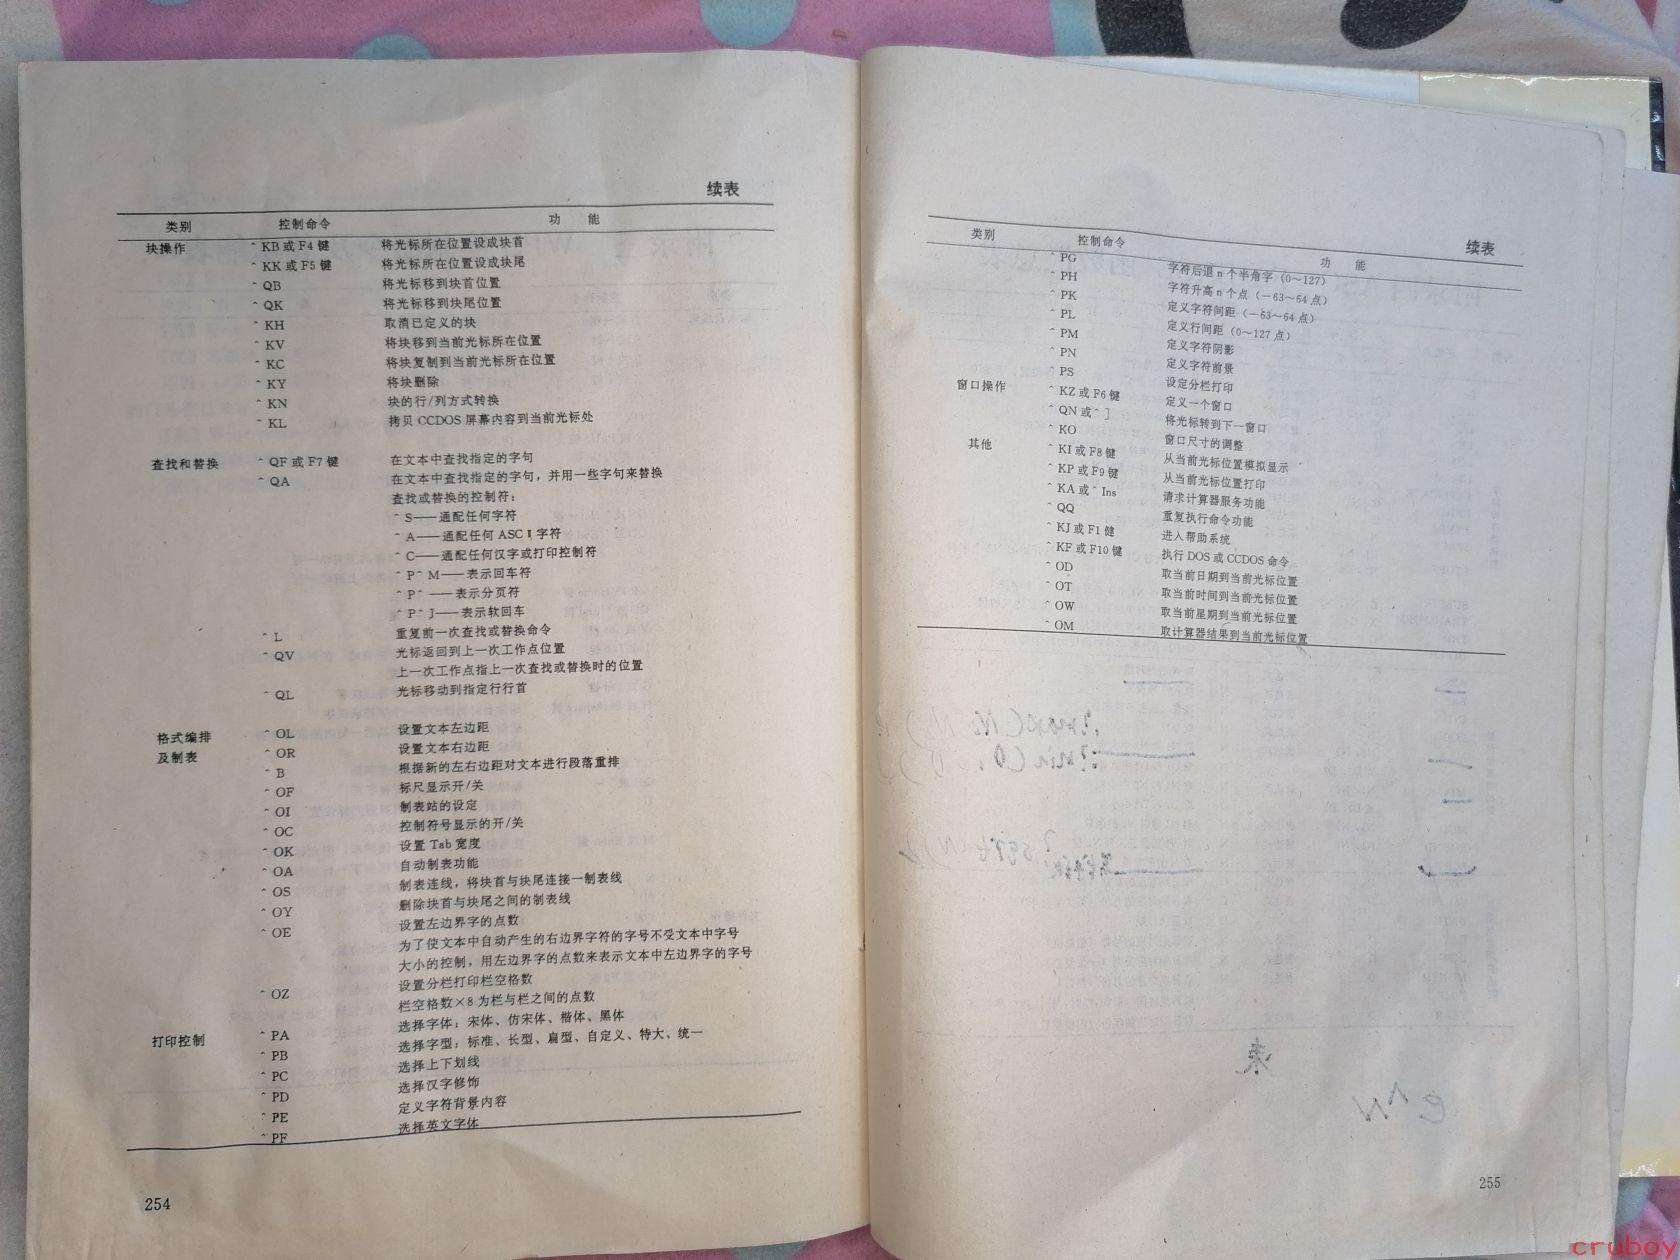 续表
类别 控制命令 功 能
块操作 ^KB 或 F4 键 将光标所在位置设成块首
^KK 或 F5 键 将光标所在位置设成块尾
^QB 将光标移到块首位置
^QK 将光标移到块尾位置
^KH 取消已定义的块
^KV 将块移到当前光标所在位置
^KC 将块复制到当前光标所在位置
^KY 将块删除
^KN 块的行/列方式转换
^KL 拷贝 CCDOS 屏幕内容到当前光标处
查找和替换 ^QF 或 F7 键 在文本中查找指定的字句
^QA 在文本中查找指定的字句，并用一些字句来替换
查找或替换的控制符：
^S——通配任何字符
^A——通配任何 ASCⅡ 字符
^C——通配任何汉字或打印控制符
^P^M——表示回车符
^P^ ——表示分页符
^P^J——表示软回车
^L 重复前一次查找或替换命令
^QV 光标返回到上一次工作点位置
上一次工作点指上一次查找或替换时的位置
^QL 光标移动到指定行行首
格式编排 ^OL 设置文本左边距
及制表 ^OR 设置文本右边距
^B 根据新的左右边距对文本进行段落重排
^OF 标尺显示开/关
^OI 制表站的设定
^OC 控制符号显示的开/关
^OK 设置 Tab 宽度
^OA 自动制表功能
^OS 制表连线，将块首与块尾连接一制表线
^OY 删除块首与块尾之间的制表线
^OE 设置左边界字的点数
为了使文本中自动产生的右边界字符的字号不受文本中字号
大小的控制，用左边界字的点数来表示文本中左边界字的字号
^OZ 设置分栏打印栏空格数
栏空格数×8 为栏与栏之间的点数
打印控制 ^PA 选择字体：宋体、仿宋体、楷体、黑体
^PB 选择字型：标准、长型、扁型、自定义、特大、统一
^PC 选择上下划线
^PD 选择汉字修饰
^PE 定义字符背景内容
^PF 选择英文字体
254
续表
类别 控制命令 功 能
^PG 字符后退 n 个半角字（0～127）
^PH 字符升高 n 个点（－63～64 点）
^PK 定义字符间距（－63～64 点）
^PL 定义行间距（0～127 点）
^PM 定义字符阴影
^PN 定义字符前景
^PS 设定分栏打印
窗口操作 ^KZ 或 F6 键 定义一个窗口
^QN 或^] 将光标转到下一窗口
^KO 窗口尺寸的调整
其他 ^KI 或 F8 键 从当前光标位置模拟显示
^KP 或 F9 键 从当前光标位置打印
^KA 或^Ins 请求计算器服务功能
^QQ 重复执行命令功能
^KJ 或 F1 键 进入帮助系统
^KF 或 F10 键 执行 DOS 或 CCDOS 命令
^OD 取当前日期到当前光标位置
^OT 取当前时间到当前光标位置
^OW 取当前星期到当前光标位置
^OM 取计算器结果到当前光标位置
255
cruboy